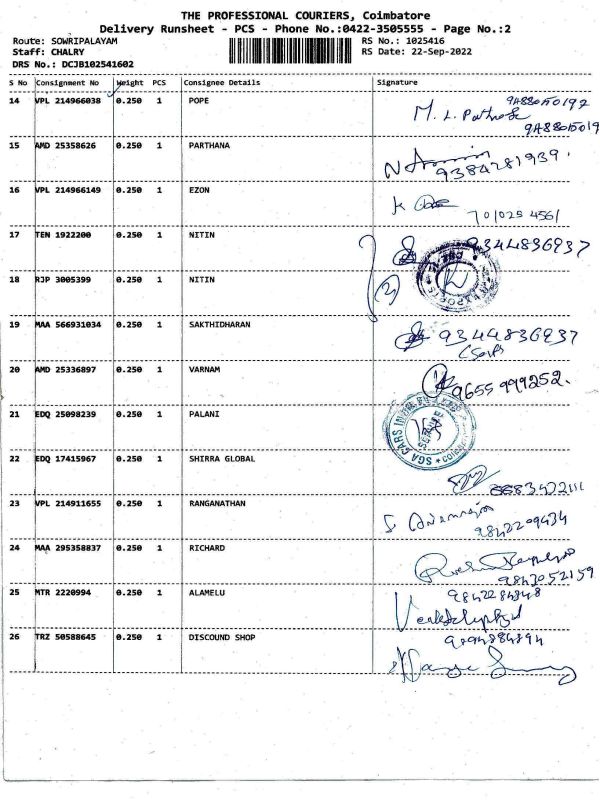 THE PROFESSIONAL COURIERS, Coimbatore
Delivery Runsheet - PCS - Phone No.:0422-3505555 - Page No.:2
Route: SOWRIPALAYAM RS No.: 1025416
Staff: CHALRY RS Date: 22-Sep-2022
DRS No.: DCJB102541602
S No Consignment No Weight PCS Consignee Details Signature
14 VPL 214966038 0.250 1 POPE
15 AMD 25358626 0.250 1 PARTHANA 9384281939
16 VPL 214966149 0.250 1 EZON
17 TEN 1922200 0.250 1 NITIN 9344836937
18 RJP 3005399 0.250 1 NITIN
19 MAA 566931034 0.250 1 SAKTHIDHARAN 9344836937
20 AMD 25336897 0.250 1 VARNAM 9655999252.
21 EDQ 25098239 0.250 1 PALANI
SGA CARS
22 EDQ 17415967 0.250 1 SHIRRA GLOBAL
23 VPL 214911655 0.250 1 RANGANATHAN 9842209434
24 MAA 295358837 0.250 1 RICHARD 9843052159
25 MTR 2220994 0.250 1 ALAMELU
26 TRZ 50588645 0.250 1 DISCOUND SHOP